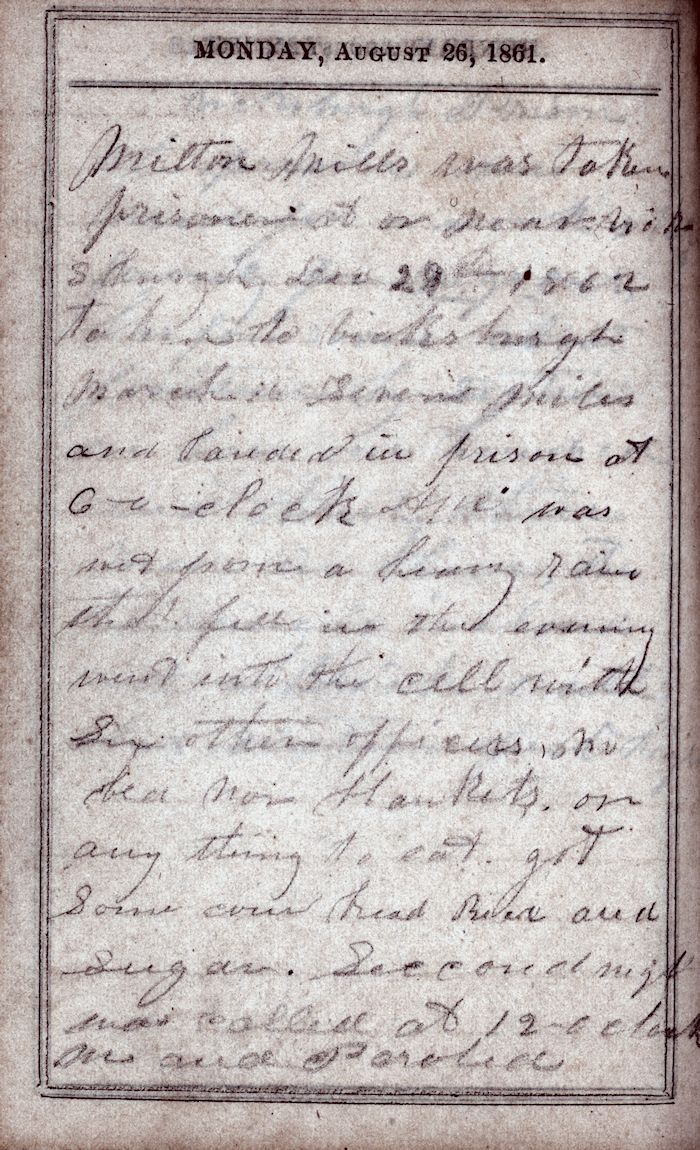 MONDAY, AUGUST 26, 1861.
Milton Mills was taken
prisoner at or near vick
sburgh Dec 29th 1862
taken to vicksburgh
March seven miles
and landed in prison at
6-o-clock was
wet from a heavy rain
that fell in the evening
went into the cell with
Six other officers, no
bed nor blankets. or
any thing to eat. got
Some corn bread and
sugar. Seccond nigh
was called at 12-oclock
m and Paroled